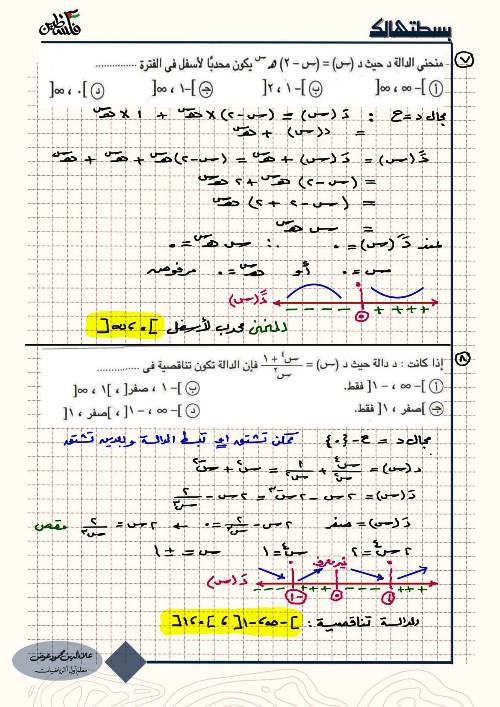 فلسطين
بسطتهالك
٧ منحنى الدالة د حيث د (س) = (س - ٢) هـ^س يكون محدبًا لأسفل فى الفترة ..............
أ ]-∞ ، ∞[ ب ]-١ ، ٢[ جـ ]-١ ، ∞[ د ]٠ ، ∞[
مجال د = ح : دَ(س) = (س-٢) × هـ^س + ١ × هـ^س
= د(س) + هـ^س
دً(س) = دَ(س) + هـ^س = (س-٢) هـ^س + هـ^س + هـ^س
= (س-٢) هـ^س + ٢ هـ^س
= (س - ٢ + ٢) هـ^س
= س هـ^س
عند دً(س) = ٠ ∴ س هـ^س = ٠
س = ٠ أو هـ^س = ٠ مرفوض
دً(س) - - - - - - ٠ + + + +
المنحنى محدب لأسفل ]٠ ، ∞[
٨ إذا كانت : د دالة حيث د (س) = (س^٤ + ١)/س^٢ فإن الدالة تكون تناقصية فى ..............
أ ]-∞ ، -١[ فقط. ب ]-١ ، صفر[ ، ]١ ، ∞[
جـ ]صفر ، ١[ فقط. د ]-∞ ، -١[ ، ]صفر ، ١[
مجال د = ح - {٠} ممكن تشتق أو تبسط الدالة وبعدين تشتق
د(س) = س^٤/س^٢ + ١/س^٢ = س^٢ + س^-٢
دَ(س) = ٢س - ٢س^-٣ = ٢س - ٢/س^٣
دَ(س) = صفر ٢س - ٢/س^٣ = ٠ ← ٢س = ٢/س^٣ مقص
٢س^٤ = ٢ س^٤ = ١ س = ± ١
غير معرف
دَ(س) - - - -١ + + + ٠ - - - ١ + + +
الدالة تناقصية : ]-∞ ، -١[ ، ]٠ ، ١[
علاء الدين محمود عوض
معلم أول أ رياضيات